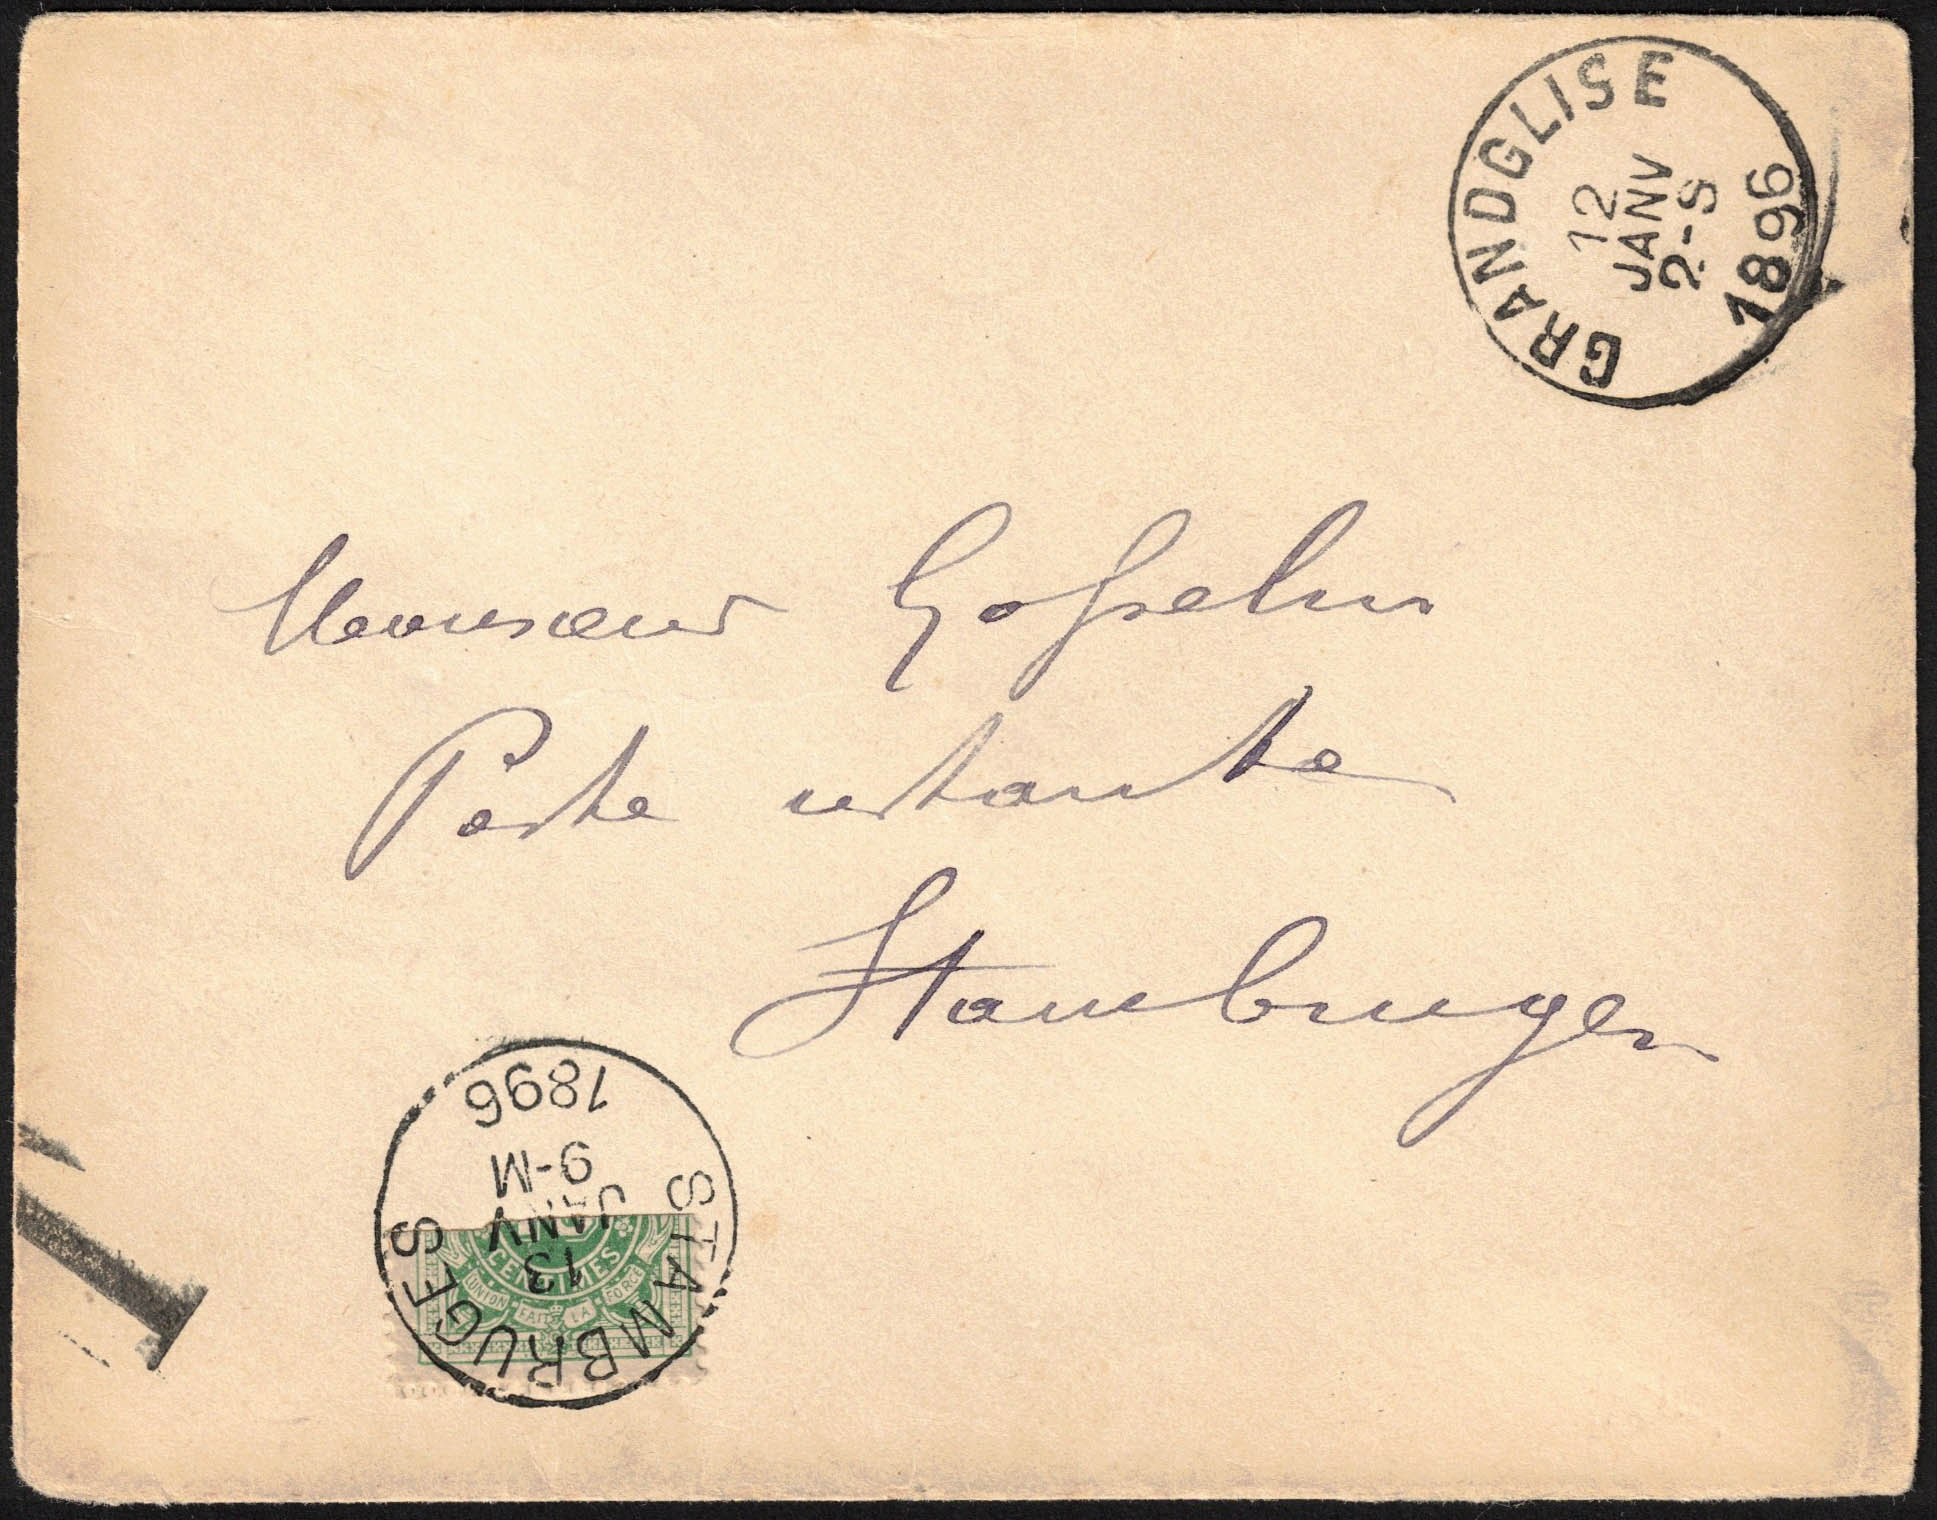 GRANDGLISE
12
JANV
2-S
1896
Monsieur Gosselin
Poste restante
Stambruges
STAMBRUGES
13
JANV
9-M
1896
CENTIMES
UNION FAIT LA FORCE
T